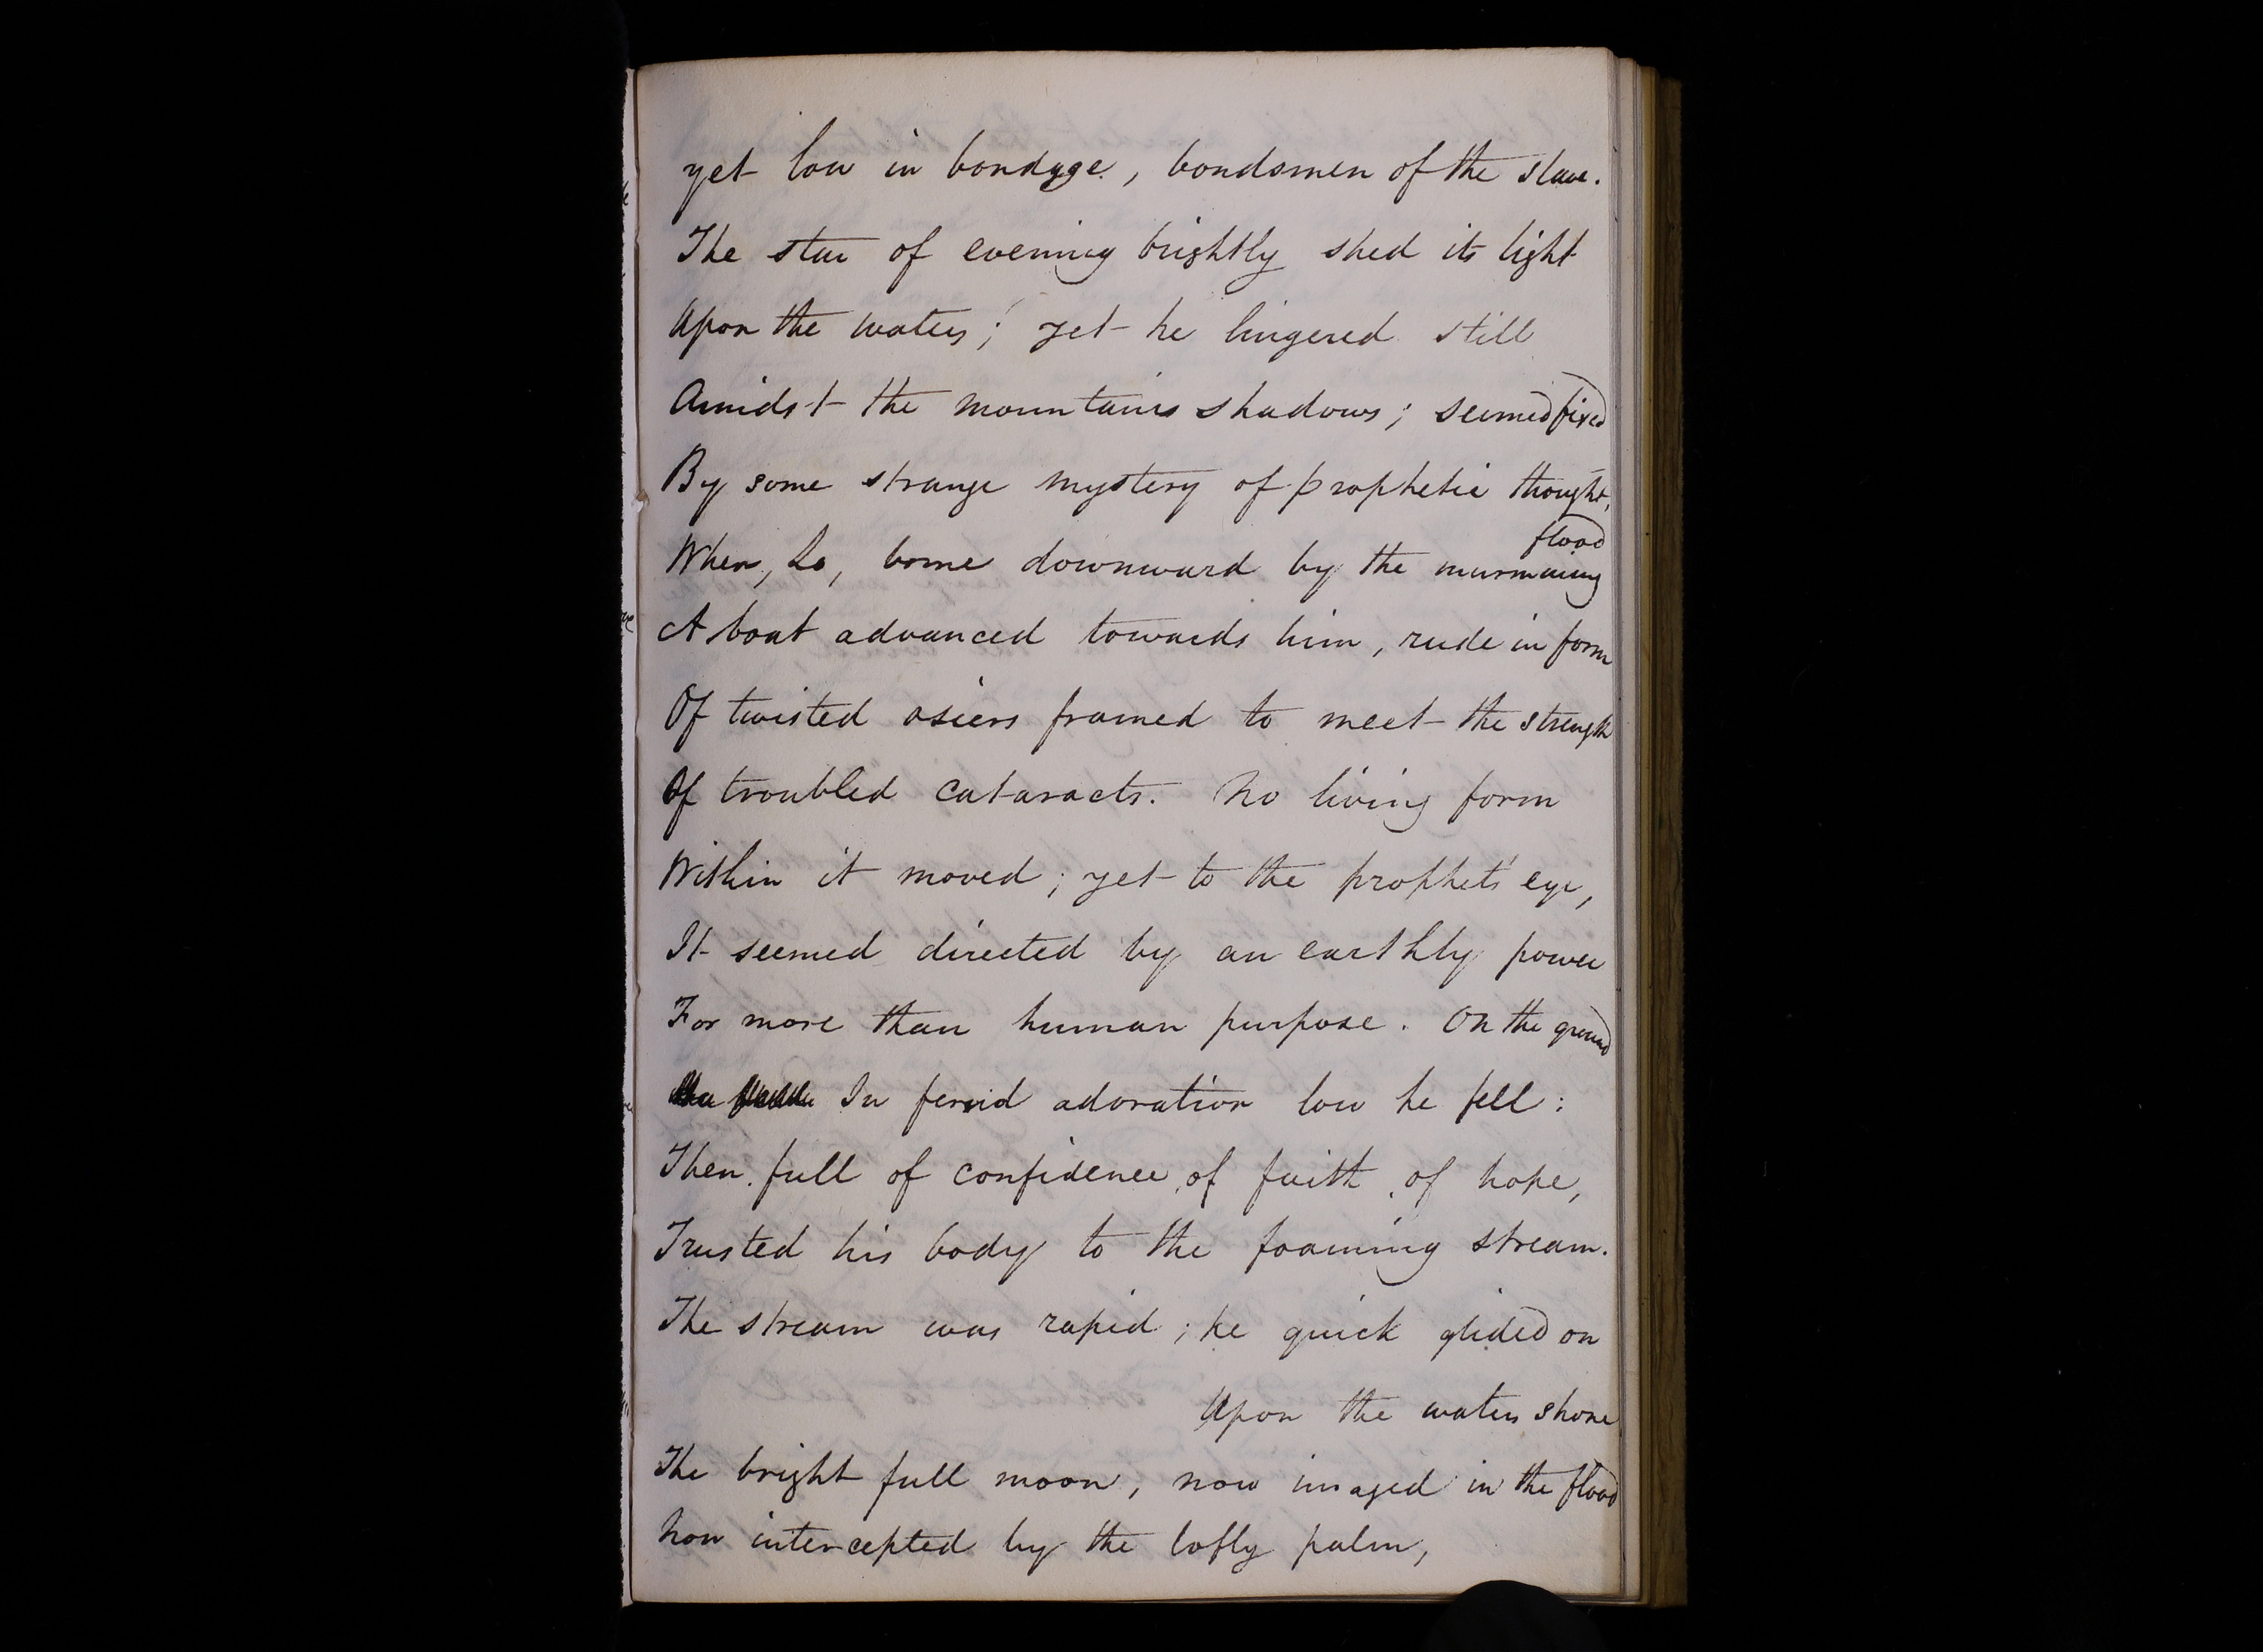 yet low in bondage, bondsmen of the slave.
The star of evening brightly shed its light
Upon the waters; yet he lingered still
Amidst the mountains shadows; seemed fixed
By some strange mystery of prophetic thought,
flood
When, Lo, borne downward by the murmuring
A boat advanced towards him, rude in form
Of twisted osiers framed to meet the strength
Of troubled cataracts. No living form
Within it moved; yet to the prophet's eye,
It seemed directed by an earthly power
For more than human purpose. On the ground
In fervid adoration low he fell:
Then full of confidence, of faith, of hope,
Trusted his body to the foaming stream.
The stream was rapid; he quick glided on
Upon the waters shone
The bright full moon, now imaged in the flood
Now intercepted by the lofty palm,